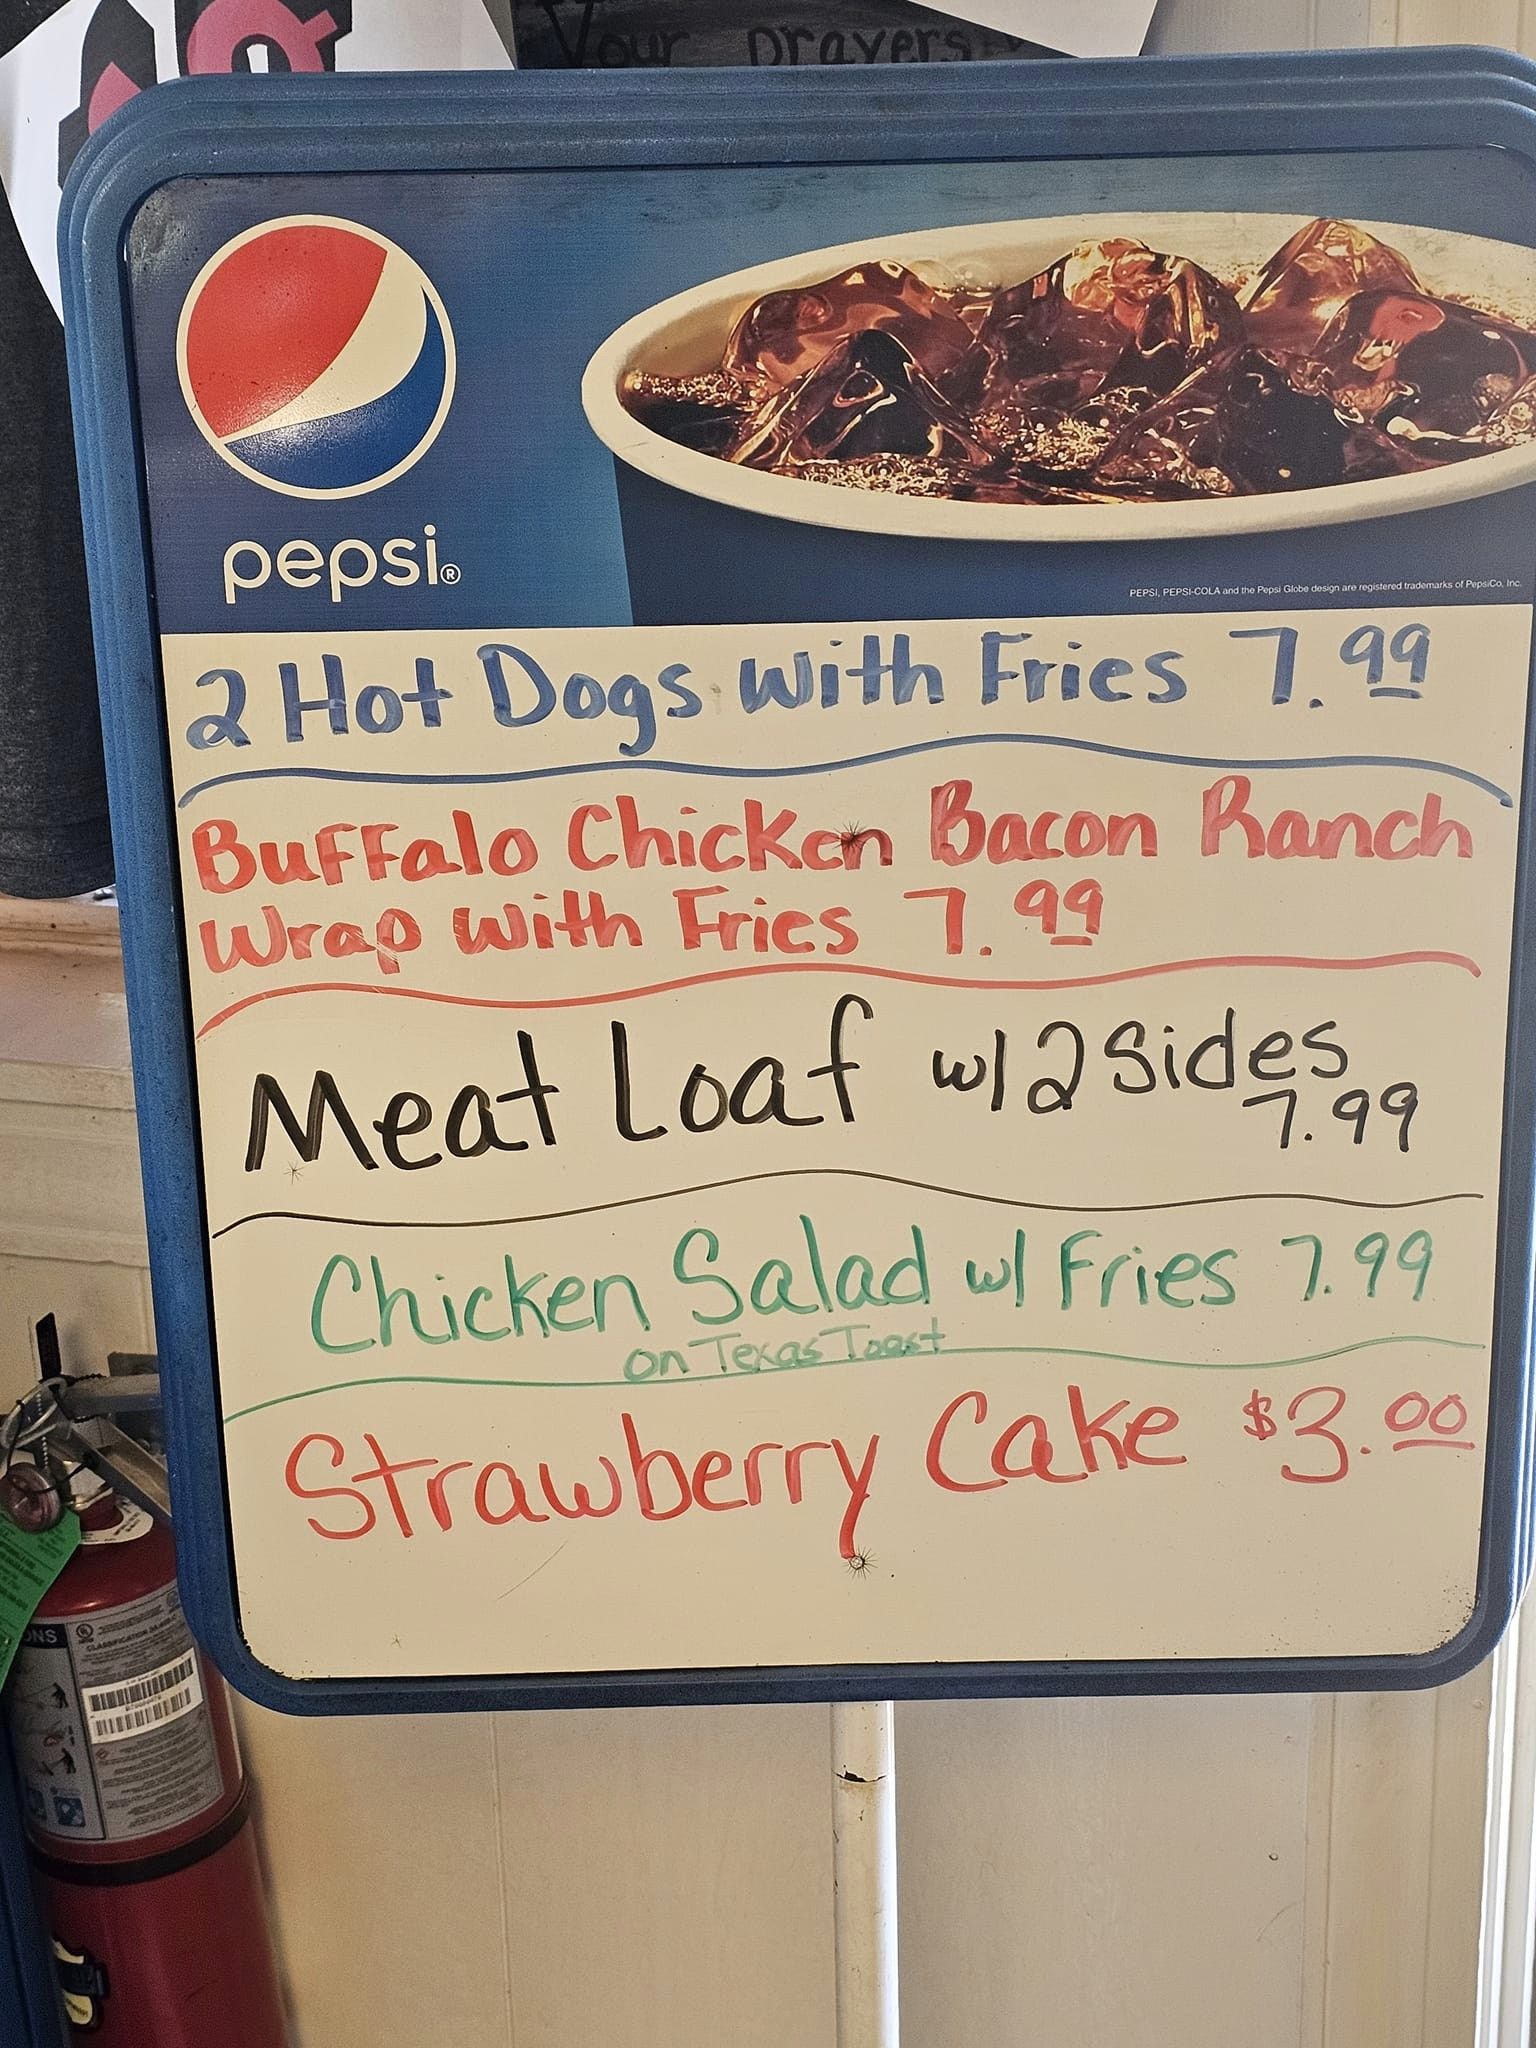 Your prayers
pepsi®
PEPSI, PEPSI-COLA and the Pepsi Globe design are registered trademarks of PepsiCo, Inc.
2 Hot Dogs with Fries 7.99
Buffalo Chicken Bacon Ranch
Wrap with Fries 7.99
Meat Loaf w/ 2 Sides
7.99
Chicken Salad w/ Fries 7.99
on Texas Toast
Strawberry Cake $3.00
CLASSIFICATION